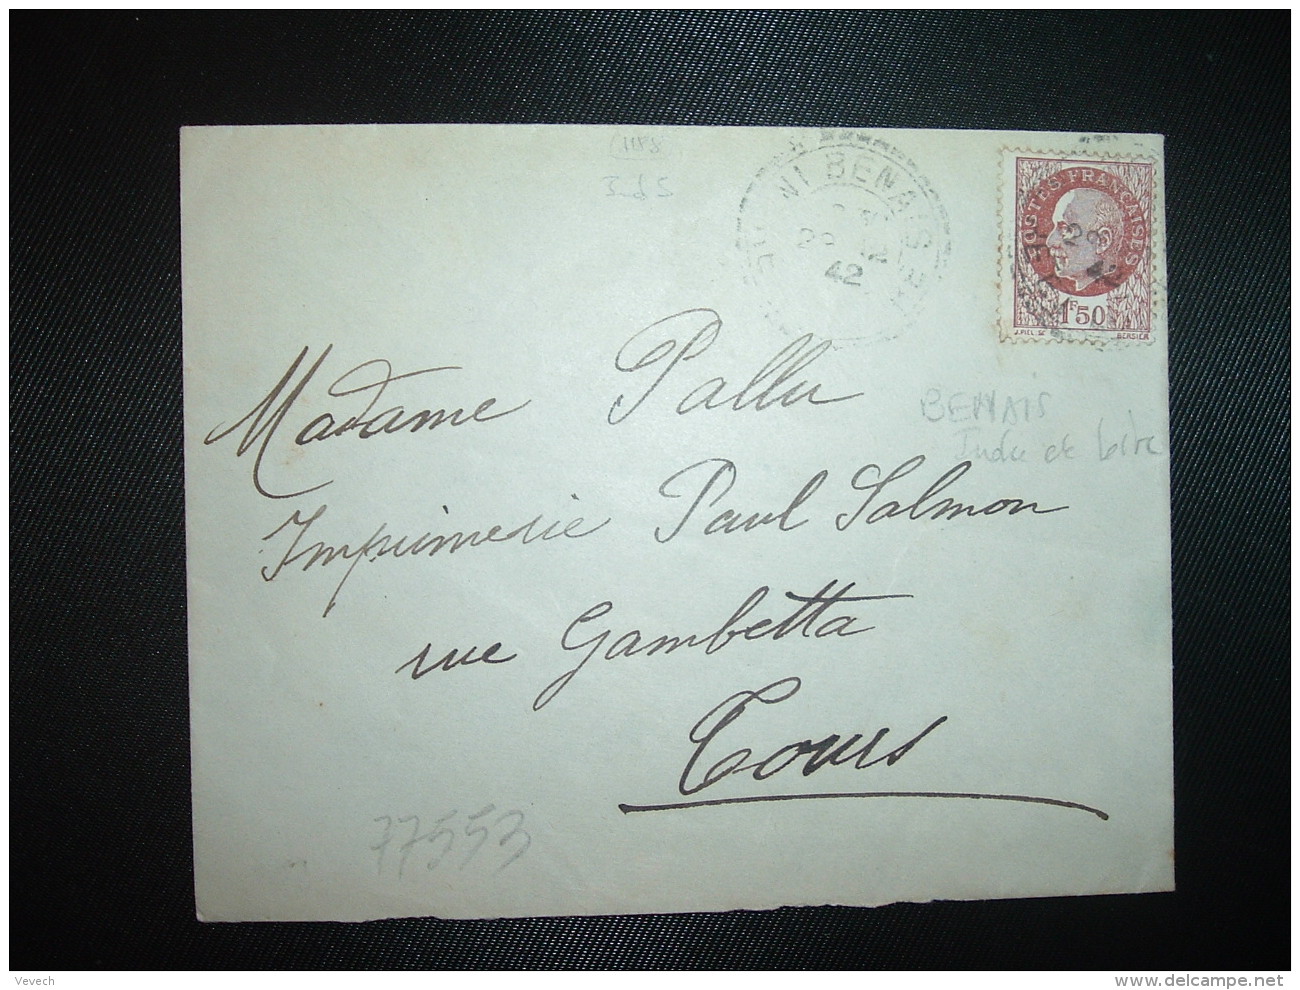 1188
BENAIS
42
POSTES FRANÇAISES
1F50
BERSIER
Madame Pallu
BENAIS
Indre et Loire
Imprimerie Paul Salmon
rue Gambetta
Tours
77553
Vevech
www.delcampe.net